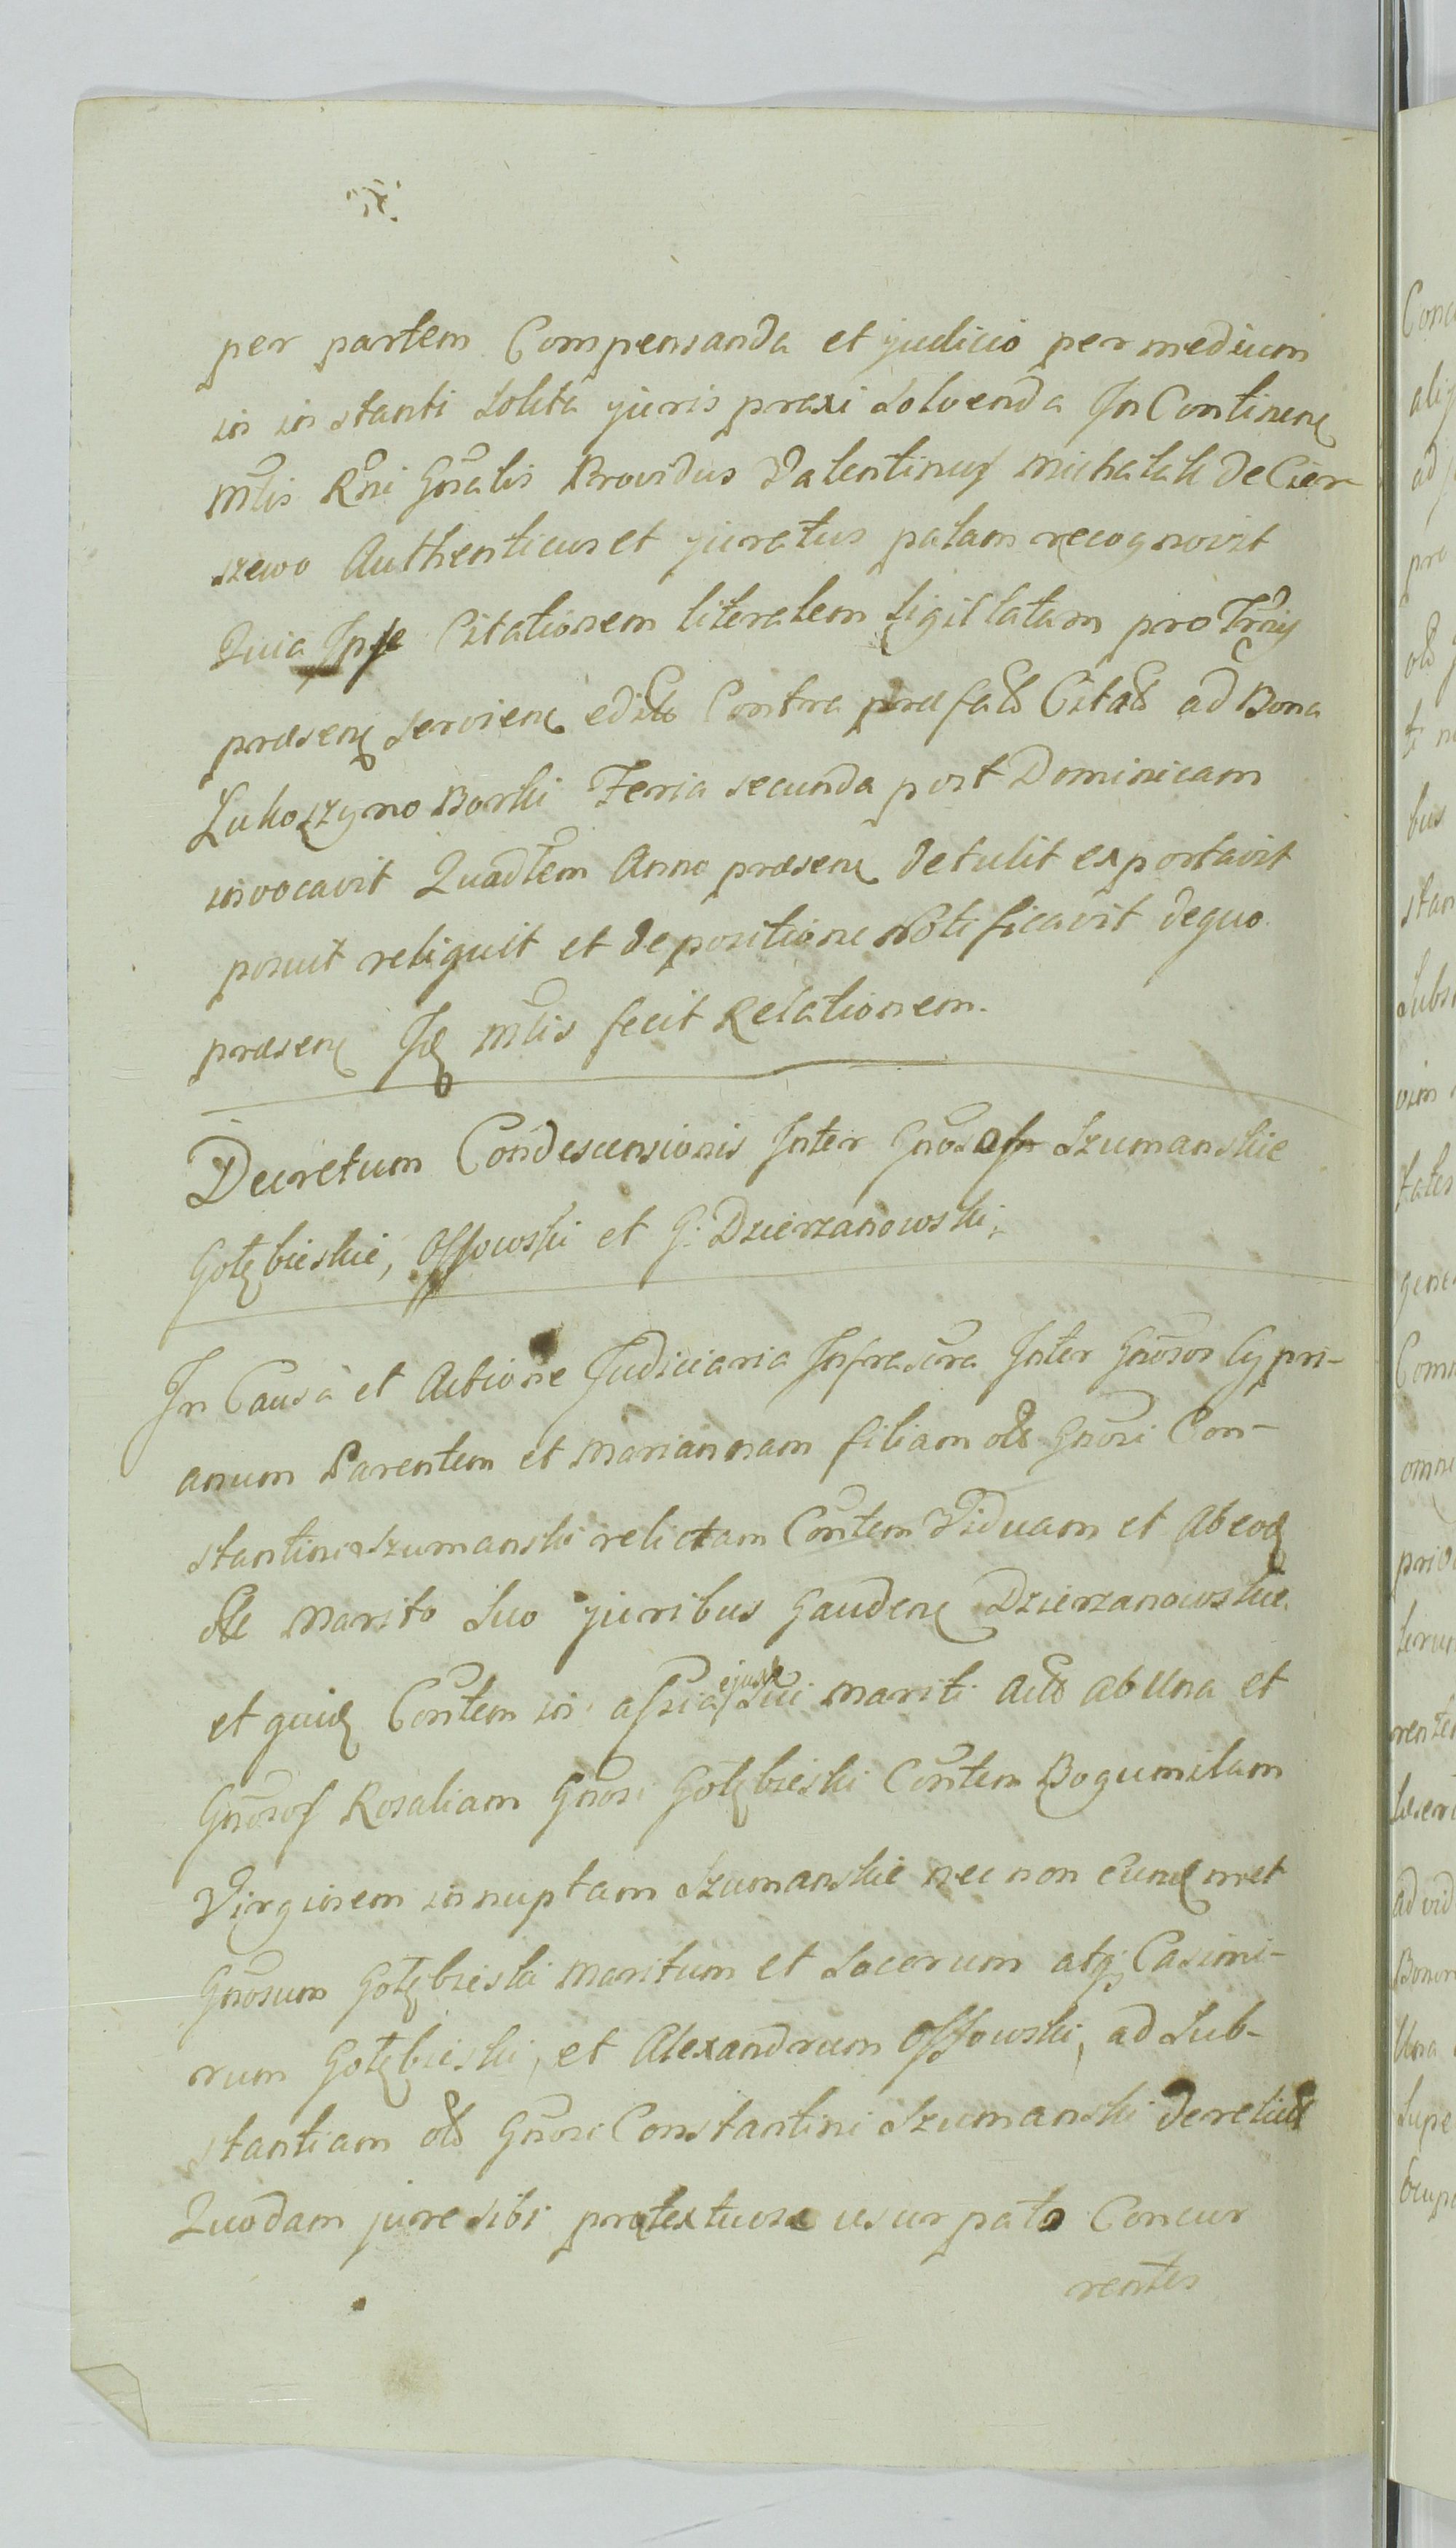 per partem Compensanda et judicio per medium
in instanti solita juris praxi solvenda In Continen
Mtis Rni Gnalis Providus Valentinus Michalak de Cier-
szewo Authenticus et juratus palam recognovit
Quia Ipse Citationem literalem sigillatam pro Trnis
praesen servien edit Contra praefat Citat ad Bona
Lukoszyno Borki Feria secunda post Dominicam
invocavit Quadtem Anno praesen detulit exportavit
posuit reliquit et de positione notificavit de quo
praesen Id Mtis fecit Relationem.
Decretum Condescensionis Inter Gnosos Szumanskie
Gołębieskie, Ossowski et G. Dzierzanowski.
In Causa et Actione Judiciaria Infrascra Inter Gnosos Cypri-
anum Parentem et Mariannam filiam olt Gnosi Con-
stantini Szumanski relictam Contem Viduam et ab eod
olt Marito suo juribus Gauden Dzierzanowskie
et quid Contem in assia ejusd sui mariti Act ab Una et
Gnosos Rosaliam Gnosi Gołębieski Contem Bogumilam
Virginem innuptam Szumanskie nec non Eund met
Gnosum Gołębieski Maritum et Socerum atq Casimi-
rum Gołębieski, et Alexandrum Ossowski, ad Sub-
stantiam olt Gnosi Constantini Szumanski derelict
Quodam jure sibi praetextuose usurpato Concur
rentes